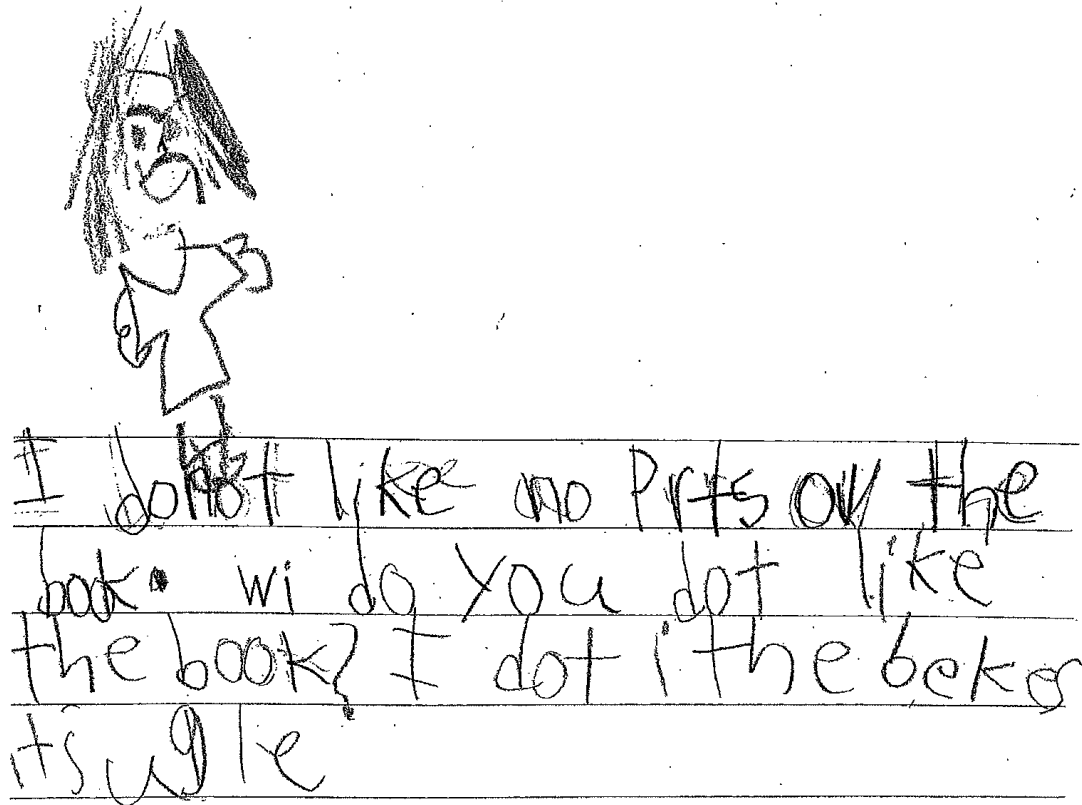 I donot like no Prts ov the
book. wi do you dot like
the book? I dot i the bekes
its uglie